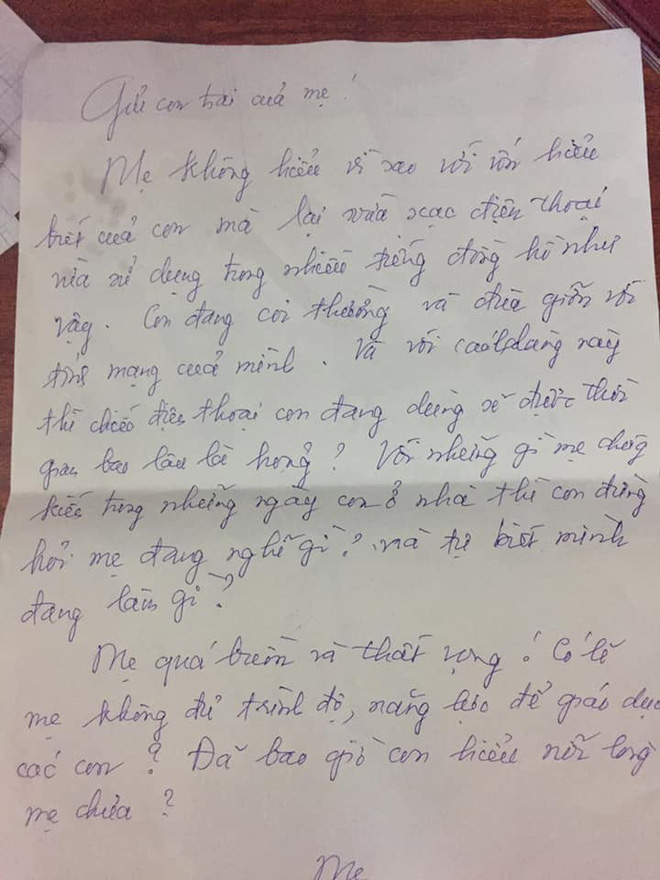 Gửi con trai của mẹ!
Mẹ không hiểu vì sao với vốn hiểu
biết của con mà lại vừa xạc điện thoại
vừa sử dụng trong nhiều tiếng đồng hồ như
vậy. Con đang coi thường và đùa giỡn với
tính mạng của mình. Và với cách dùng này
thì chiếc điện thoại con đang dùng sẽ được thời
gian bao lâu là hỏng? Với những gì mẹ chứng
kiến trong những ngày con ở nhà thì con đừng
hỏi mẹ đang nghĩ gì? và tự biết mình
đang làm gì?
Mẹ quá buồn và thất vọng! Có lẽ
mẹ không đủ trình độ, năng lực để giáo dục
các con? Đã bao giờ con hiểu nỗi lòng
mẹ chưa?
Mẹ